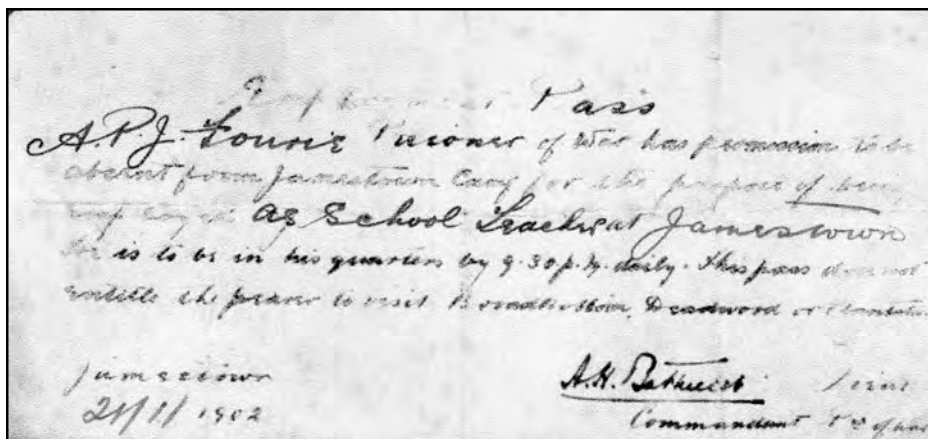 Employment Pass
A.P.J. Fourie Prisoner of War has permission to be
absent from Jamestown Camp for the purpose of being
employed as School Teacher at Jamestown
He is to be in his quarters by 9.30 p.m. daily. This pass does not
entitle the bearer to visit Broadbottom, Deadwood or
Jamestown
21/1/1902
A.H. Bathurst
Commandant P of War